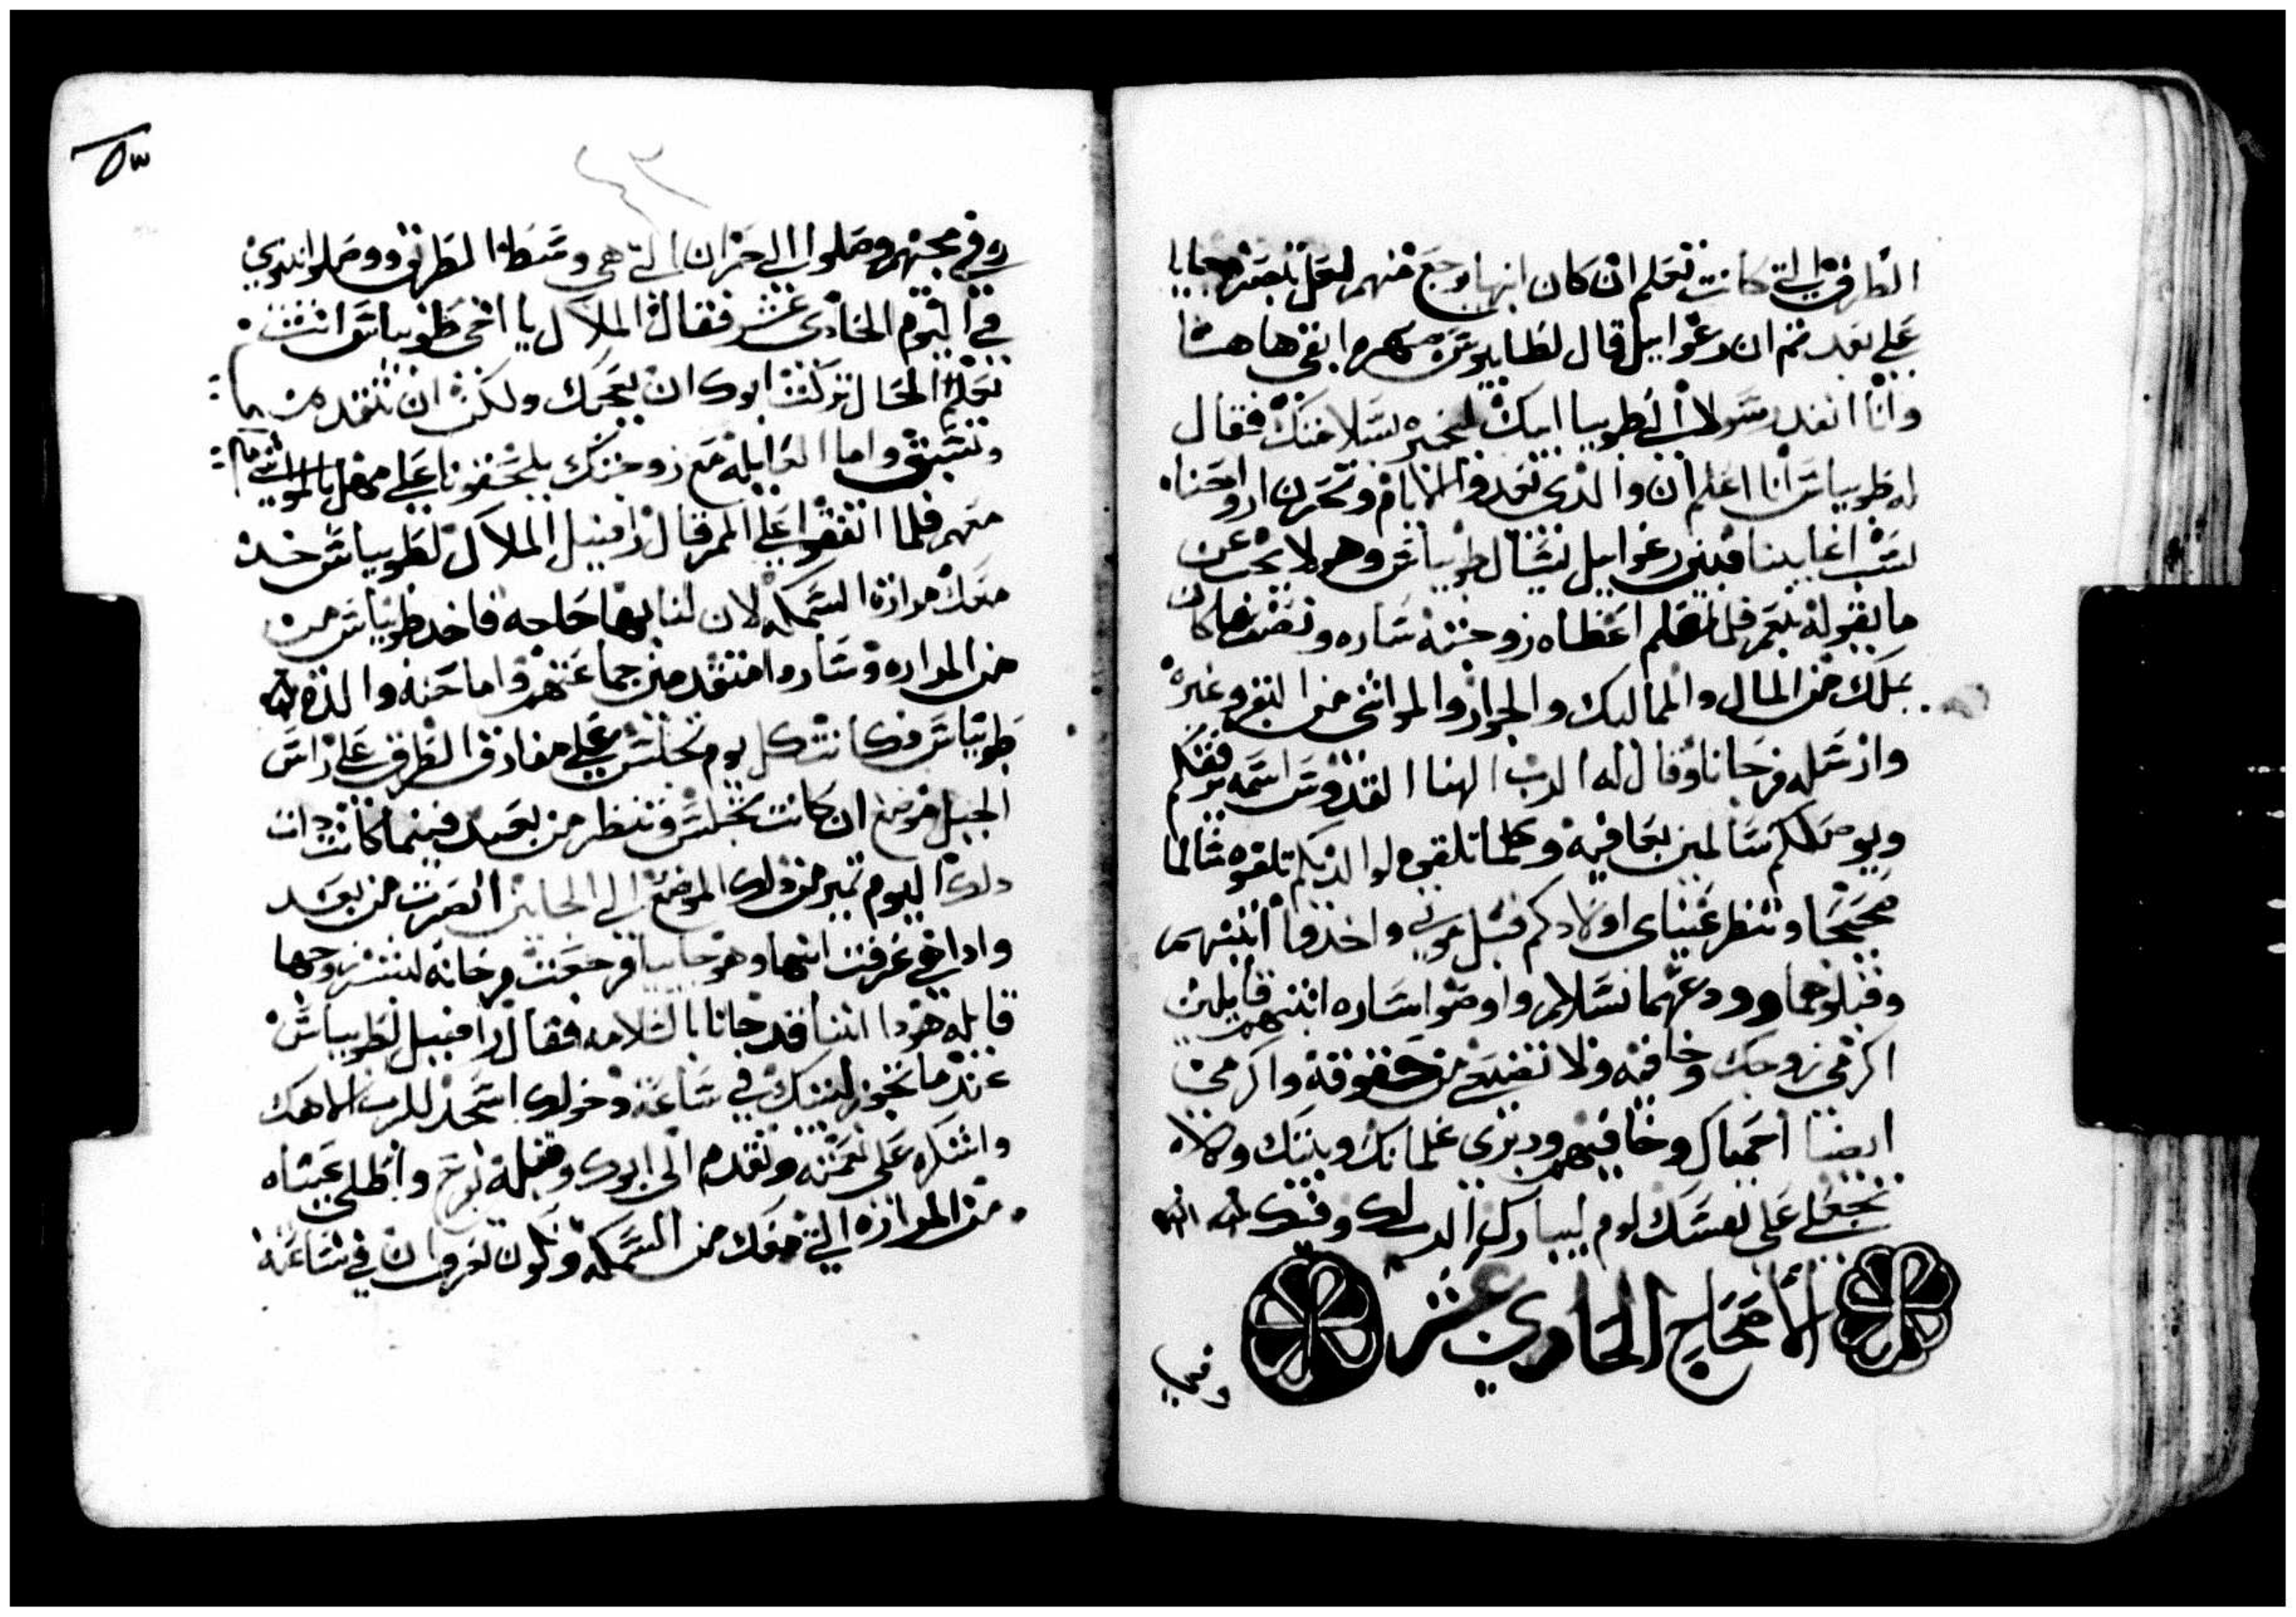 الطرق التي كانت تعلم ان كان ابنها يرجع منهم لعل تبصره جايا
علي بعد ثم ان رعوابيل قال لطابيوس صهره ابقي هاهنا
وانا انفد رسولا الي طوبيا ابيك ليخبره بسلامتك فقال
له طوبياس انا اعلم ان والدي تعدوا الايام وتحزن ارواحنا
بسبب اغابينا فبقي رعوابيل يسال طوبياس وهو لا يجب عن
ما يقوله بنعم فلما علم اعطاه زوجته ساره ونصف ما كان
يملك من المال والمماليك والجوار والمواشي من البقر وغيره
وارسله فرحانا وقال له الرب الهنا القدوس اسمه يرفقكم
ويوصلكم سالمين بعافيه وكلما تلقوه لوالديكم تلقوه سالما
صحيحا وتنظر عيناى اولادكم قبل موتي واخذوا ابنتهم
وقبلوهما وودعهما بسلام واوصوا ساره ابنتهم قايلين
اكرمي زوجك وخافيه ولا تضيعي من حقوقه واكرمي
ايضا احماك وخافيهم ودبري غلمانك وبنتك ولا
تجعلي على نفسك لوم ليبارك الرب لك وفيك
الأصحاح الحادي عشر
وفي
٥٣
٤٣
وفي مجيهم وصلوا الي حزان التي هي وسط الطريق ووصلوا نينوي
في اليوم الحادي عشر فقال الملاك يا اخي طوبياس انت
تعلم الحال تركت ابوك ان يعجبك ولكن ان نتقدم
ونسبق واما العايله مع زوجتك يلحقونا علي مهل بالمواشي
معهم فلما اتفقوا علي الامر قال رافييل الملاك لطوبياس خد
معك مرارة السمكه لان لنا بها حاجه فاخد طوبياس من
من المراره وساروا متقدمين جماعتهم واما حنه والدة
طوبياس فكانت كل يوم تجلس علي مفارق الطرق علي راس
الجبل موضع ان كانت تجلس وتنظر من بعيد فبينما كانت دات
دلك اليوم تميز من دلك الموضع الي الجايين ابصرت من بعد
وادا هي عرفت ابنها وهو جايبا فرجعت فرحانه لتبشر زوجها
قايله هودا ابننا قد جانا بالسلامه فقال رافييل لطوبياس
عندما تجوز لبيتك في ساعة دخولك اسجد للرب الاهك
واشكره علي نعمته وتقدم الى ابوك وقبله بفرح واطلي عيناه
من المرارة التي معك من السمكه وتكون تعرف ان في ساعة